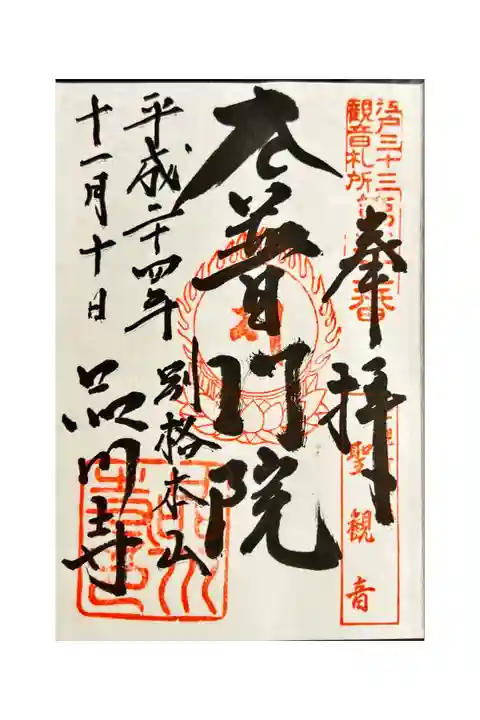 江戸三十三
観音札所
番
奉拝
聖観音
普門院
別格本山
平成二十四年
十一月十日
品川寺